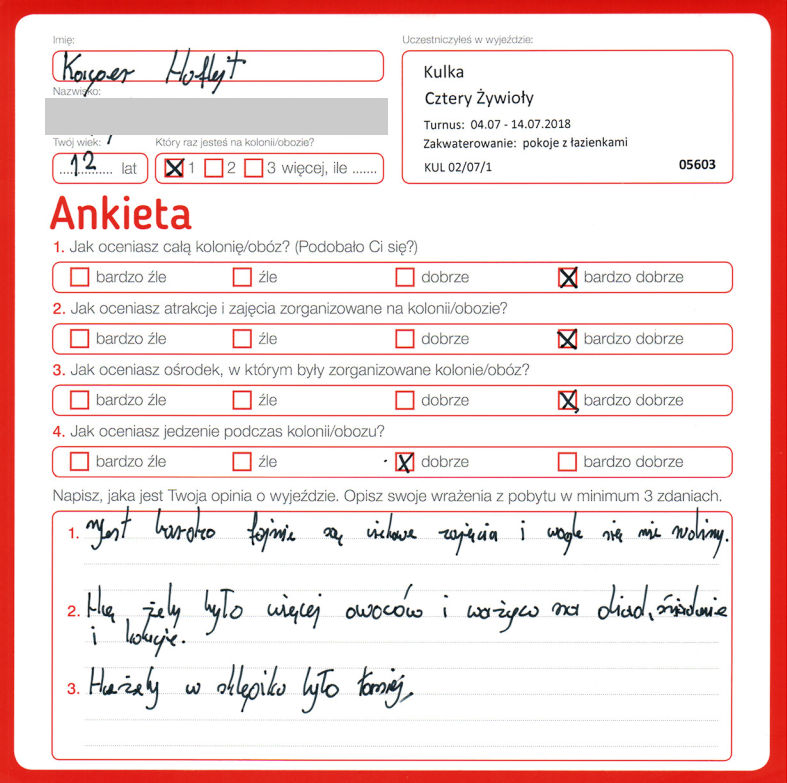 Imię:
Uczestniczyłeś w wyjeździe:
Kacper
Kulka
Nazwisko:
Cztery Żywioły
Turnus: 04.07 - 14.07.2018
Twój wiek:
Który raz jesteś na kolonii/obozie?
Zakwaterowanie: pokoje z łazienkami
12 lat
1 2 3 więcej, ile .......
KUL 02/07/1
05603
Ankieta
1. Jak oceniasz całą kolonię/obóz? (Podobało Ci się?)
bardzo źle źle dobrze X bardzo dobrze
2. Jak oceniasz atrakcje i zajęcia zorganizowane na kolonii/obozie?
bardzo źle źle dobrze X bardzo dobrze
3. Jak oceniasz ośrodek, w którym były zorganizowane kolonie/obóz?
bardzo źle źle dobrze X bardzo dobrze
4. Jak oceniasz jedzenie podczas kolonii/obozu?
bardzo źle źle X dobrze bardzo dobrze
Napisz, jaka jest Twoja opinia o wyjeździe. Opisz swoje wrażenia z pobytu w minimum 3 zdaniach.
1. Jest bardzo fajnie są ciekawe zajęcia i wogle się nie nudimy.
2. żeby było więcej owoców i ważyw na obiad, śniadanie
i kolacje.
3. w sklepiku było taniej.